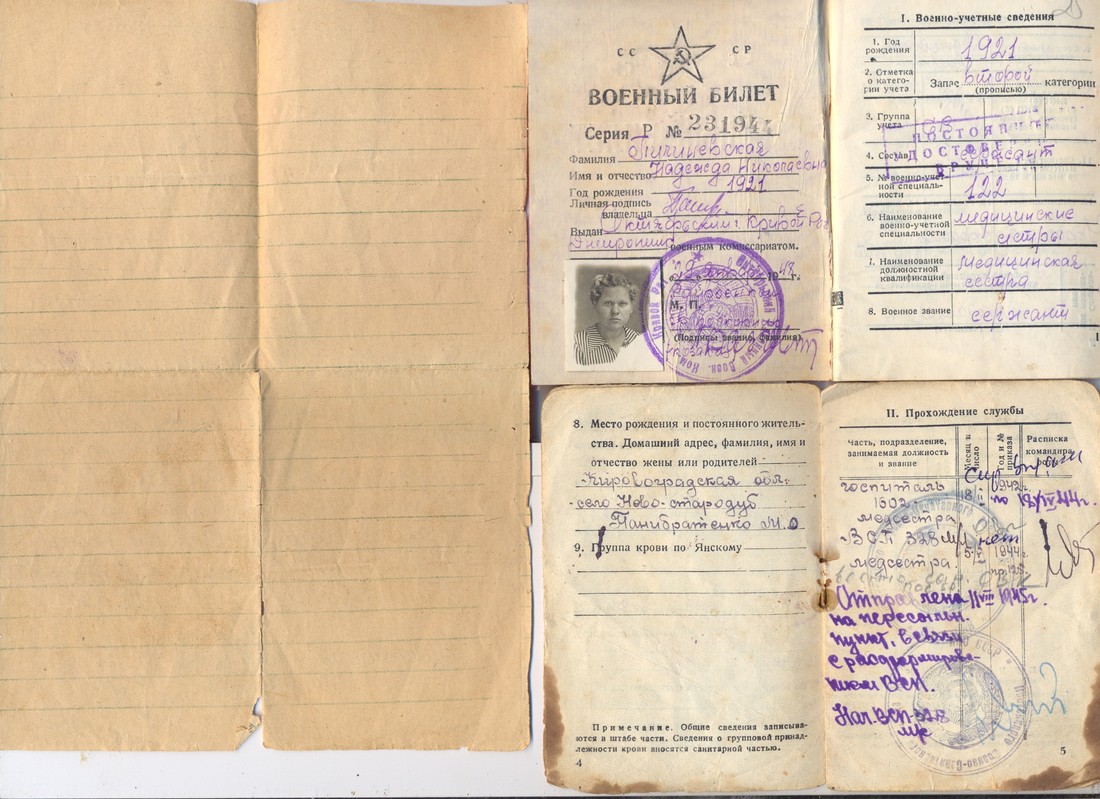 СС СР
ВОЕННЫЙ БИЛЕТ
Серия Р № 231944
Фамилия
Имя и отчество Надежда Николаевна
Год рождения 1921
Личная подпись
владельца
Выдан Октябрьским г. Кривой Рог
военным комиссариатом.
19 г.
М. П.
(Подпись, звание, фамилия)
I. Военно-учетные сведения
1. Год
рождения 1921
2. Отметка
о катего-
рии учета
Запас второй категории
(прописью)
3. Группа
учета
4. Состав сержант
5. № военно-учет-
ной специаль-
ности 122
6. Наименование
военно-учетной
специальности
медицинские
сестры
7. Наименование
должностной
квалификации
медицинская
сестра
8. Военное звание сержант
8. Место рождения и постоянного житель-
ства. Домашний адрес, фамилия, имя и
отчество жены или родителей
Кировоградская обл.
село Ново-стародуб
Панибратенко М.О
9. Группа крови по Янскому
Примечание. Общие сведения записыва-
ются в штабе части. Сведения о групповой принад-
лежности крови вносятся санитарной частью.
4
II. Прохождение службы
Часть, подразделение,
занимаемая должность
и звание
Месяц и
число
Год и №
приказа
Расписка
командира
госпиталь 1942г.
1602 по 18/IV 44г.
медсестра
ВСП 328 нет
медсестра 1944г.
Отправлена 11 VIII 1945г.
на пересыльн.
пункт, в связи
с расформирова-
нием ВСП.
Нач. ВСП-328
5